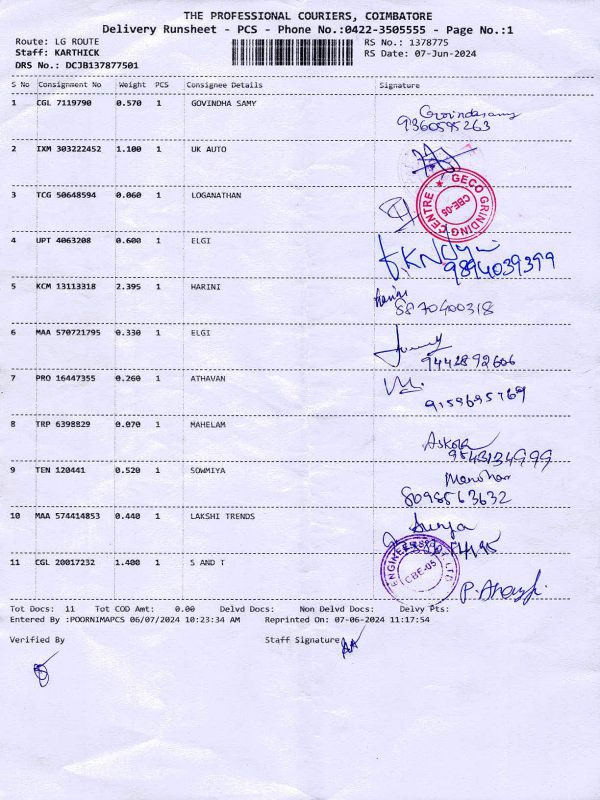 THE PROFESSIONAL COURIERS, COIMBATORE
Delivery Runsheet - PCS - Phone No.:0422-3505555 - Page No.:1
Route: LG ROUTE RS No.: 1378775
Staff: KARTHICK RS Date: 07-Jun-2024
DRS No.: DCJB137877501
S No Consignment No Weight PCS Consignee Details Signature
1 CGL 7119790 0.570 1 GOVINDHA SAMY
Govindasamy
9360595263
2 IXM 303222452 1.100 1 UK AUTO
3 TCG 50648594 0.060 1 LOGANATHAN
GECO GRINDING CENTRE
CBE-05
4 UPT 4063208 0.600 1 ELGI
9894039399
5 KCM 13113318 2.395 1 HARINI
Harini
8870400318
6 MAA 570721795 0.330 1 ELGI
9442892606
7 PRO 16447355 0.260 1 ATHAVAN
9159695769
8 TRP 6398829 0.070 1 MAHELAM
9543134999
9 TEN 120441 0.520 1 SOWMIYA
Manohar
8098563632
10 MAA 574414853 0.440 1 LAKSHI TRENDS
Surya
11 CGL 20017232 1.400 1 S AND T
CBE-05
Tot Docs: 11 Tot COD Amt: 0.00 Delvd Docs: Non Delvd Docs: Delvy Pts:
Entered By :POORNIMAPCS 06/07/2024 10:23:34 AM Reprinted On: 07-06-2024 11:17:54
Verified By Staff Signature